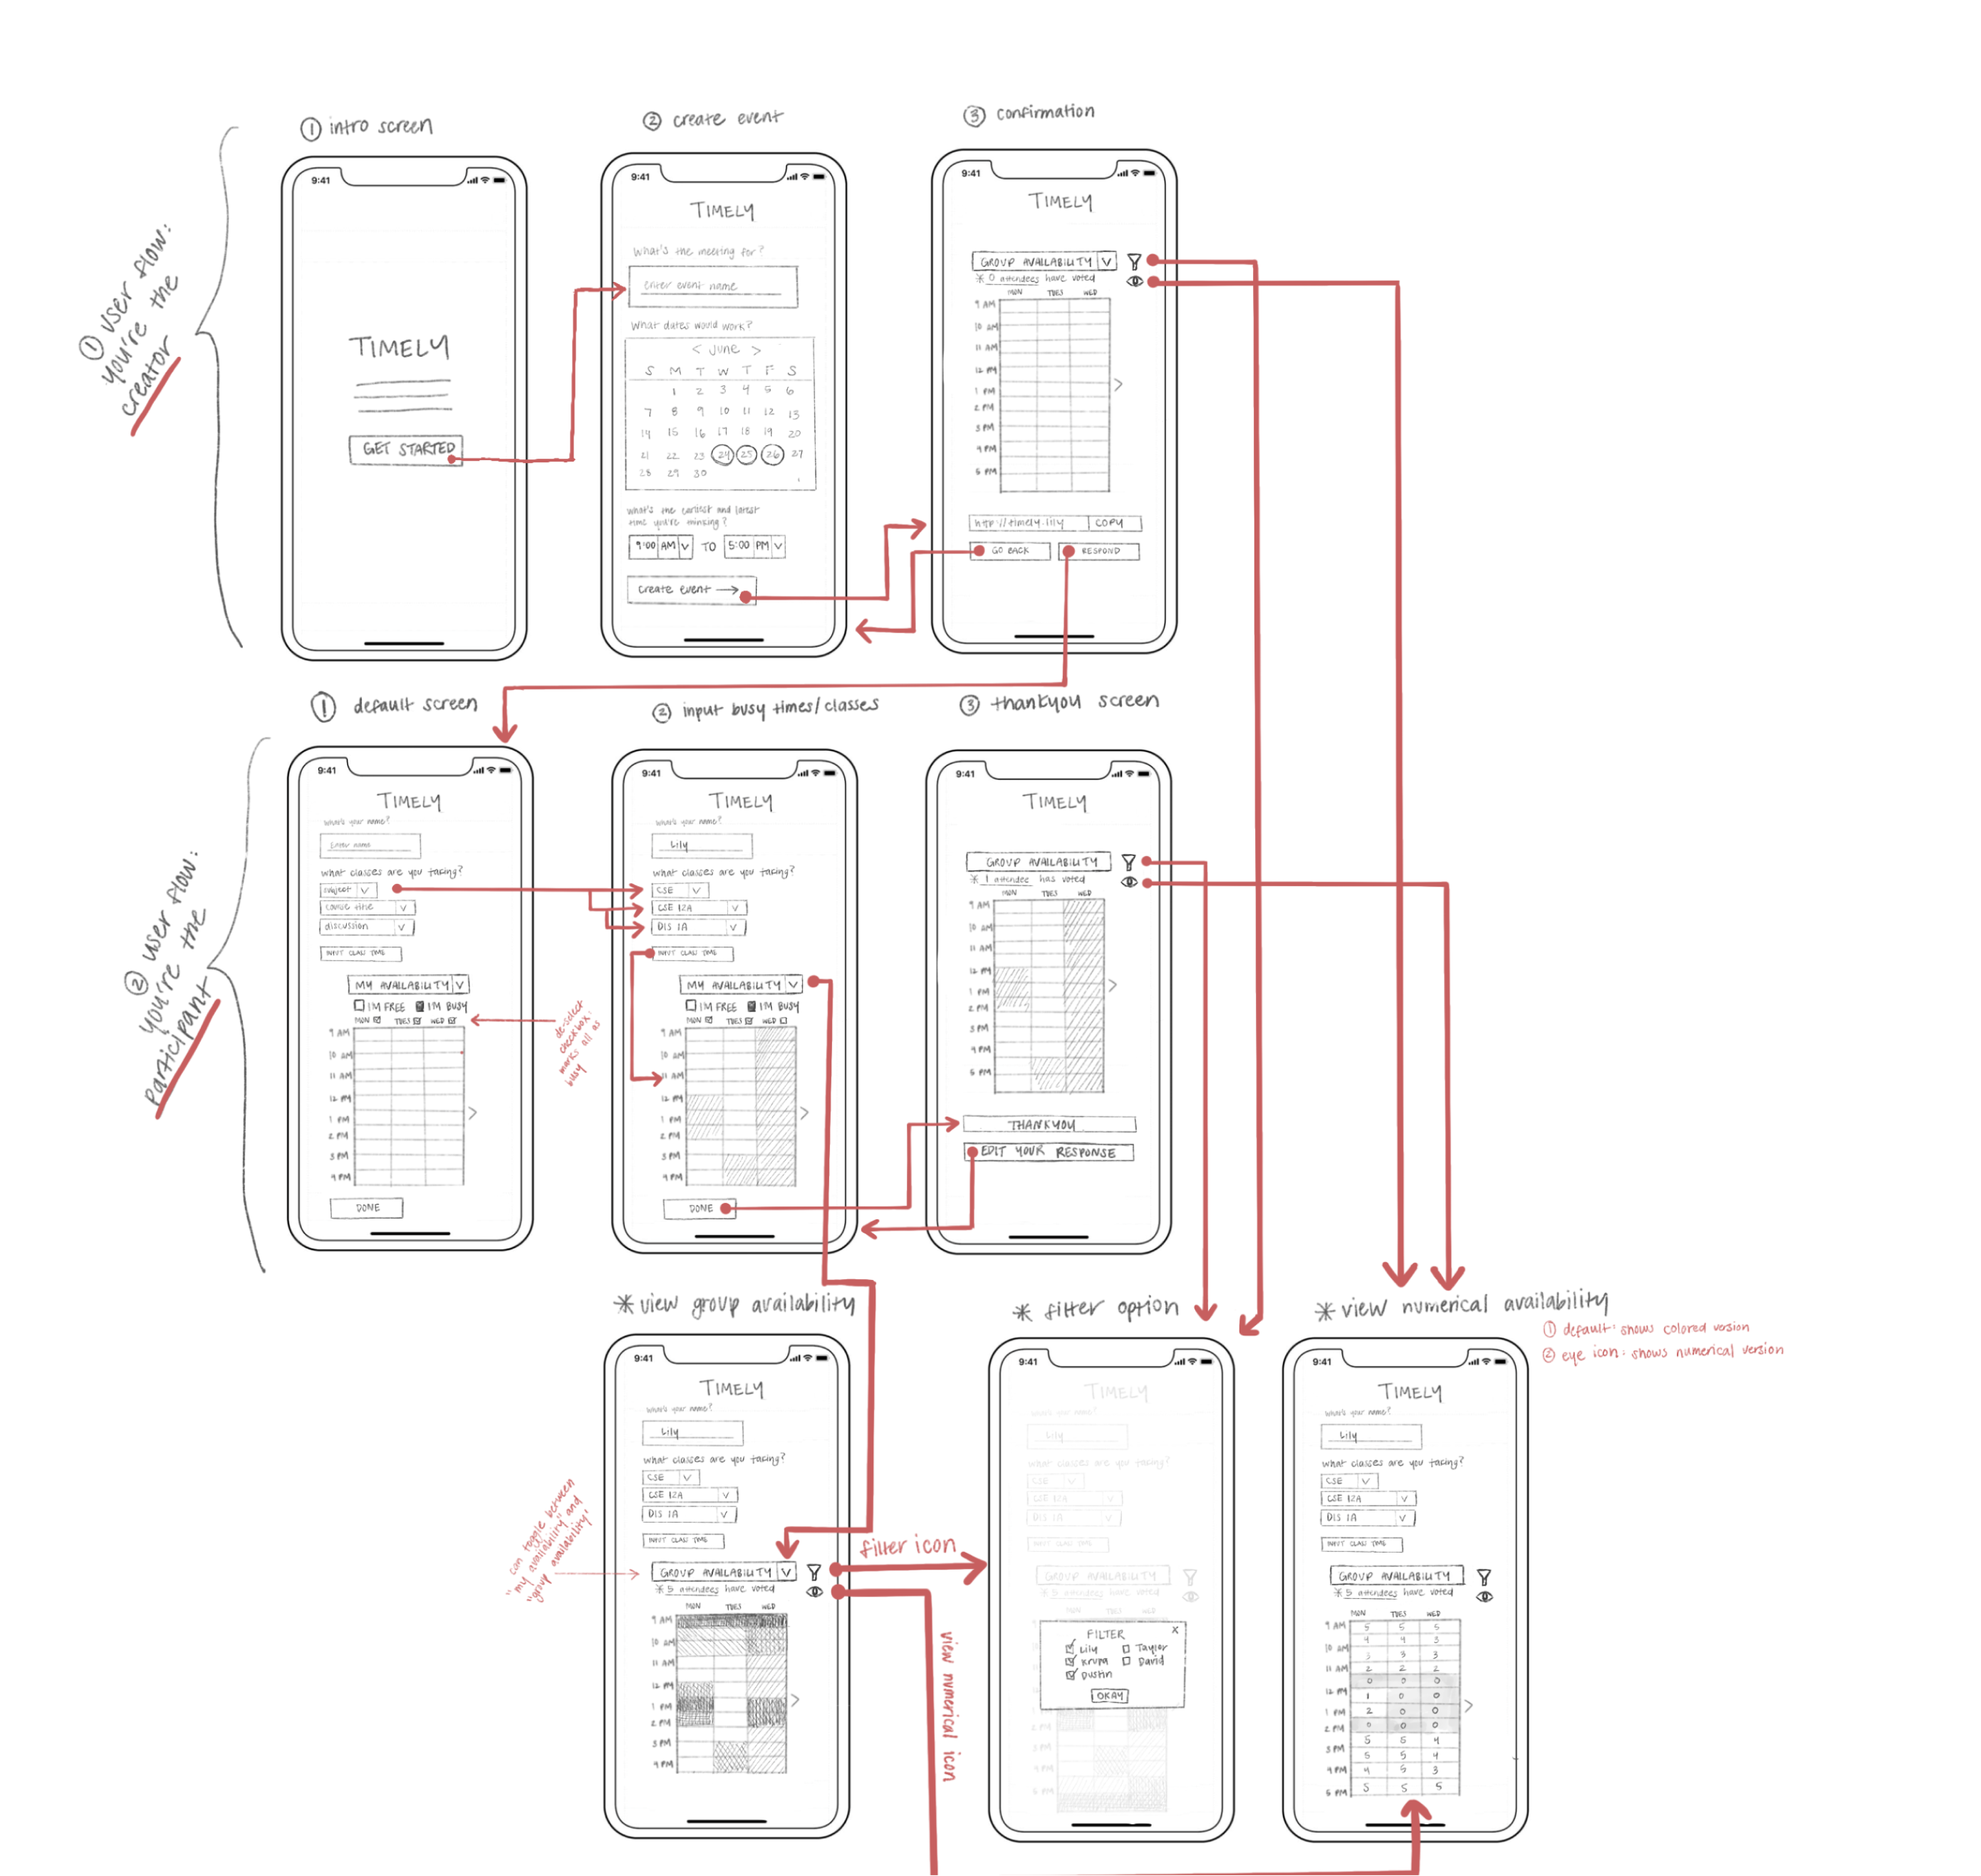 ① user flow:
you're the
creator
① intro screen
9:41
TIMELY
GET STARTED
② create event
9:41
TIMELY
What's the meeting for?
enter event name
What dates would work?
< June >
S M T W T F S
1 2 3 4 5 6
7 8 9 10 11 12 13
14 15 16 17 18 19 20
21 22 23 24 25 26 27
28 29 30
what's the earliest and latest
time you're thinking?
9:00 AM V TO 5:00 PM V
create event →
③ confirmation
9:41
TIMELY
GROUP AVAILABILITY V
* 0 attendees have voted
MON TUES WED
9 AM
10 AM
11 AM
12 PM
1 PM
2 PM
3 PM
4 PM
5 PM
>
http://timely.lily COPY
GO BACK RESPOND
② user flow:
you're the
participant
① default screen
9:41
TIMELY
what's your name?
Enter name
what classes are you taking?
subject V
course title V
discussion V
INPUT CLASS TIME
MY AVAILABILITY V
I'M FREE I'M BUSY
MON TUES WED
9 AM
10 AM
11 AM
12 PM
1 PM
2 PM
3 PM
4 PM
>
DONE
de-select
checkbox:
marks all as
busy
② input busy times/classes
9:41
TIMELY
what's your name?
Lily
what classes are you taking?
CSE V
CSE 12A V
DIS 1A V
INPUT CLASS TIME
MY AVAILABILITY V
I'M FREE I'M BUSY
MON TUES WED
9 AM
10 AM
11 AM
12 PM
1 PM
2 PM
3 PM
4 PM
>
DONE
③ thankyou screen
9:41
TIMELY
GROUP AVAILABILITY
* 1 attendee has voted
MON TUES WED
9 AM
10 AM
11 AM
12 PM
1 PM
2 PM
3 PM
4 PM
5 PM
>
THANKYOU
EDIT YOUR RESPONSE
* view group availability
9:41
TIMELY
what's your name?
Lily
what classes are you taking?
CSE V
CSE 12A V
DIS 1A V
INPUT CLASS TIME
GROUP AVAILABILITY V
* 5 attendees have voted
MON TUES WED
9 AM
10 AM
11 AM
12 PM
1 PM
2 PM
3 PM
4 PM
>
can toggle between
"my availability" and
"group availability"
filter icon
view numerical icon
* filter option
9:41
TIMELY
what's your name?
Lily
what classes are you taking?
CSE V
CSE 12A V
DIS 1A V
INPUT CLASS TIME
GROUP AVAILABILITY
* 5 attendees have voted
MON TUES WED
FILTER X
Lily Taylor
Krupa David
Dustin
OKAY
2 PM
3 PM
4 PM
5 PM
* view numerical availability
① default: shows colored version
② eye icon: shows numerical version
9:41
TIMELY
what's your name?
Lily
what classes are you taking?
CSE V
CSE 12A V
DIS 1A V
INPUT CLASS TIME
GROUP AVAILABILITY
* 5 attendees have voted
MON TUES WED
9 AM 5 5 5
10 AM 4 4 3
3 3 3
11 AM 2 2 2
0 0 0
12 PM 1 0 0
1 PM 2 0 0
2 PM 0 0 0
5 5 4
3 PM 5 5 4
4 PM 4 5 3
5 PM 5 5 5
>